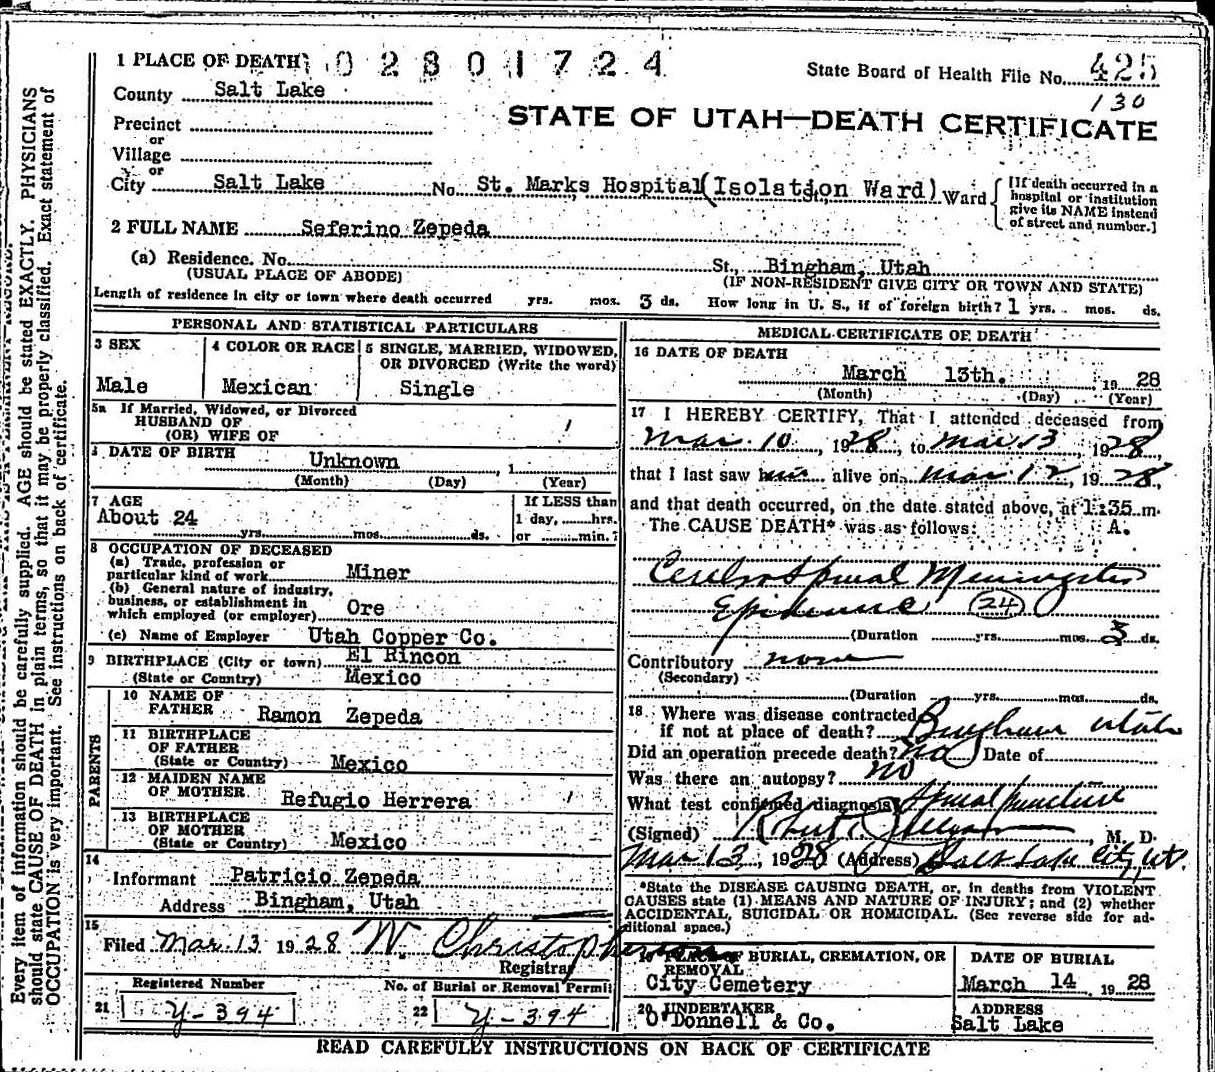 1 PLACE OF DEATH 0 2 8 0 1 7 2 4
State Board of Health File No. 425
130
County Salt Lake
STATE OF UTAH—DEATH CERTIFICATE
Precinct
or
Village
or
City Salt Lake No. St. Marks Hospital (Isolation Ward) St., Ward
[If death occurred in a
hospital or institution
give its NAME instead
of street and number.]
2 FULL NAME Seferino Zepeda
(a) Residence. No. St., Bingham, Utah
(USUAL PLACE OF ABODE) (IF NON-RESIDENT GIVE CITY OR TOWN AND STATE)
Length of residence in city or town where death occurred yrs. mos. 3 ds. How long in U. S., if of foreign birth? 1 yrs. mos. ds.
PERSONAL AND STATISTICAL PARTICULARS
3 SEX
Male
4 COLOR OR RACE
Mexican
5 SINGLE, MARRIED, WIDOWED,
OR DIVORCED (Write the word)
Single
5a If Married, Widowed, or Divorced
HUSBAND OF
(OR) WIFE OF
DATE OF BIRTH Unknown , 1
(Month) (Day) (Year)
7 AGE
About 24
yrs. mos. ds.
If LESS than
1 day, hrs.
or min.?
8 OCCUPATION OF DECEASED
(a) Trade, profession or
particular kind of work Miner
(b) General nature of industry,
business, or establishment in
which employed (or employer) Ore
(c) Name of Employer Utah Copper Co.
9 BIRTHPLACE (City or town) El Rincon
(State or Country) Mexico
PARENTS
10 NAME OF
FATHER Ramon Zepeda
11 BIRTHPLACE
OF FATHER
(State or Country) Mexico
12 MAIDEN NAME
OF MOTHER Refugio Herrera
13 BIRTHPLACE
OF MOTHER
(State or Country) Mexico
14
Informant Patricio Zepeda
Address Bingham, Utah
15
Filed Mar. 13 1928 W. Christopherson
Registrar
Registered Number
21 Y-394
No. of Burial or Removal Permit
22 Y-394
MEDICAL CERTIFICATE OF DEATH
16 DATE OF DEATH
March 13th. 19 28
(Month) (Day) (Year)
17 I HEREBY CERTIFY, That I attended deceased from
Mar. 10, 1928, to Mar 13, 1928
that I last saw him alive on Mar 12, 1928,
and that death occurred, on the date stated above, at 1:35 m.
The CAUSE DEATH* was as follows: A.
Cerebro Spinal Meningitis
Epidemic (24)
(Duration yrs. mos. 3 ds.
Contributory none
(Secondary)
(Duration yrs. mos. ds.
18 Where was disease contracted
if not at place of death? Bingham Utah
Did an operation precede death? no Date of
Was there an autopsy? no
What test confirmed diagnosis? Spinal puncture
(Signed) M. D.
Mar 13, 1928 (Address) Salt Lake City, Ut.
*State the DISEASE CAUSING DEATH, or, in deaths from VIOLENT
CAUSES state (1) MEANS AND NATURE OF INJURY; and (2) whether
ACCIDENTAL, SUICIDAL OR HOMICIDAL. (See reverse side for ad-
ditional space.)
19 PLACE OF BURIAL, CREMATION, OR
REMOVAL
City Cemetery
DATE OF BURIAL
March 14 19 28
20 UNDERTAKER
O'Donnell & Co.
ADDRESS
Salt Lake
READ CAREFULLY INSTRUCTIONS ON BACK OF CERTIFICATE
Every item of information should be carefully supplied. AGE should be stated EXACTLY. PHYSICIANS
should state CAUSE OF DEATH in plain terms, so that it may be properly classified. Exact statement of
OCCUPATION is very important. See instructions on back of certificate.